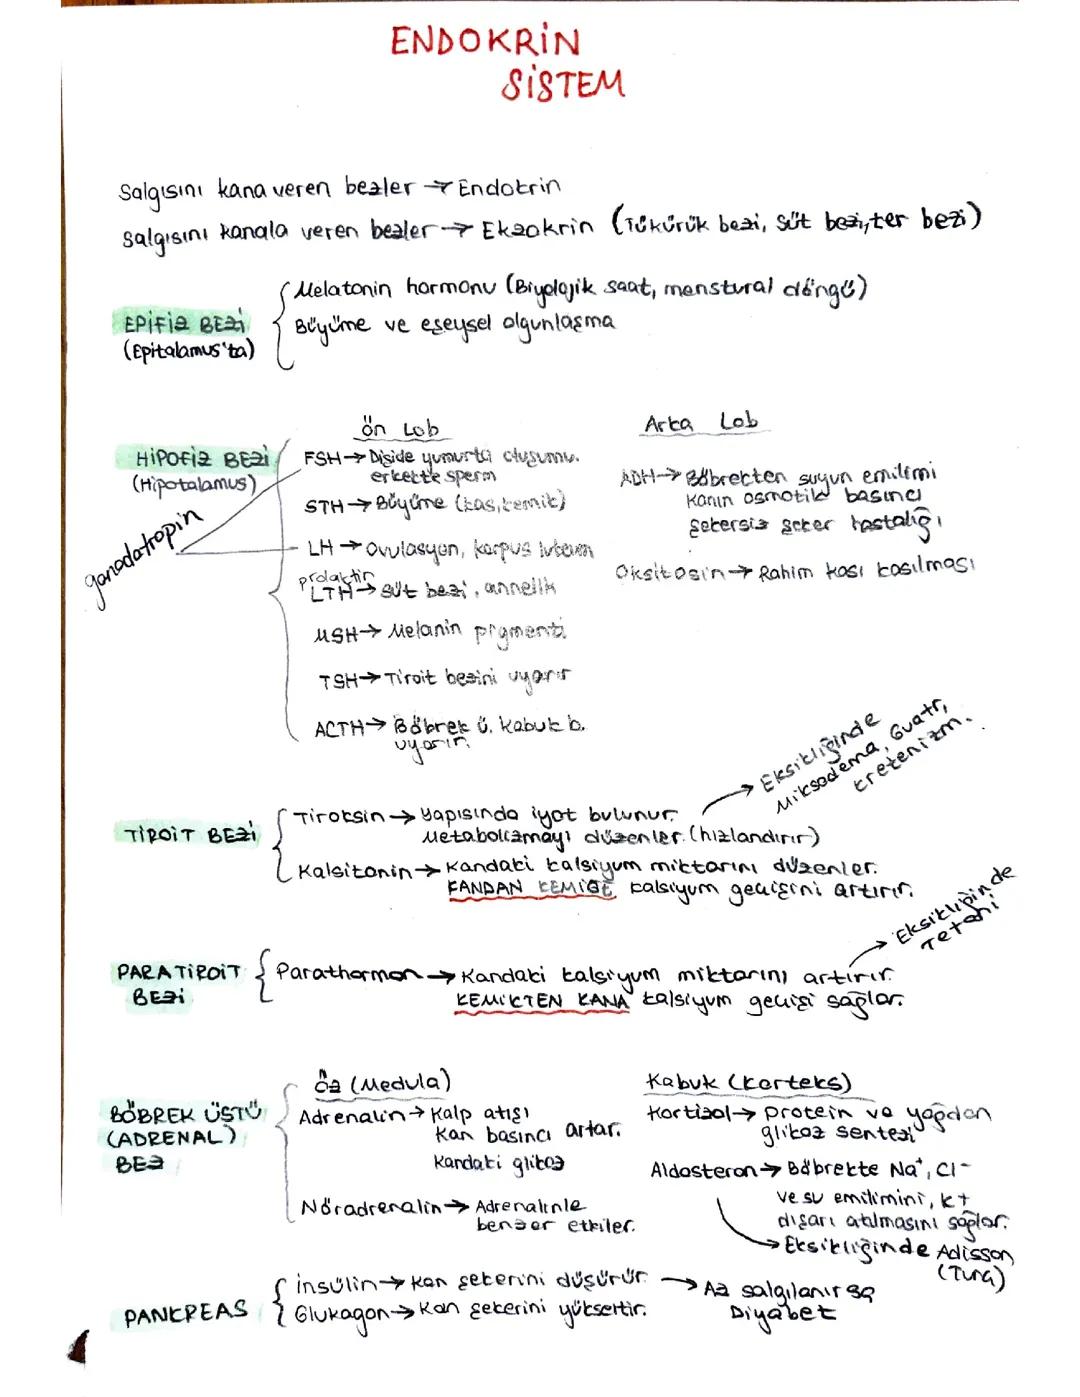 ENDOKRİN
SİSTEM
Salgısını kana veren bezler → Endokrin
Salgısını kanala veren bezler → Ekzokrin (Tükürük bezi, Süt bezi, ter bezi)
EPİFİZ BEZİ
(Epitalamus'ta)
Melatonin hormonu (Biyolojik saat, menstural döngü)
Büyüme ve eşeysel olgunlaşma
HİPOFİZ BEZİ
(Hipotalamus)
gonodotropin
Ön Lob
FSH → Dişide yumurta oluşumu.
erkekte sperm
STH → Büyüme (kas, kemik)
LH → Ovulasyon, korpus luteum
prolaktin
LTH → süt bezi, annelik
MSH → Melanin pigmenti
TSH → Tiroit bezini uyarır
ACTH → Böbrek ü. kabuk b.
uyarır.
Arka Lob
ADH → Böbrekten suyun emilimi
Kanın osmotik basıncı
Şekersiz şeker hastalığı
Oksitosin → Rahim kası kasılması
TİROİT BEZİ
Tiroksin → Yapısında iyot bulunur.
Metabolizmayı düzenler. (hızlandırır)
→ Eksikliğinde
Miksodema, Guatr,
kretenizm.
Kalsitonin → Kandaki kalsiyum miktarını düzenler.
KANDAN KEMİĞE kalsiyum geçişini artırır.
PARATİROİT
BEZİ
Parathormon → Kandaki kalsiyum miktarını artırır.
KEMİKTEN KANA kalsiyum geçişi sağlar.
→ Eksikliğinde
Tetani
BÖBREK ÜSTÜ
(ADRENAL)
BEZ
Öz (Medula)
Adrenalin → Kalp atışı
Kan basıncı artar.
Kandaki glikoz
Nöradrenalin → Adrenalinle
benzer etkiler.
Kabuk (Korteks)
Kortizol → Protein ve yağdan
glikoz sentezi
Aldosteron → Böbrekte Na⁺, Cl-
ve su emilimini, K+
dışarı atılmasını sağlar.
→ Eksikliğinde Adisson
(Tunç)
PANKREAS
İnsülin → Kan şekerini düşürür. → Az salgılanırsa
Diyabet
Glukagon → Kan şekerini yükseltir.